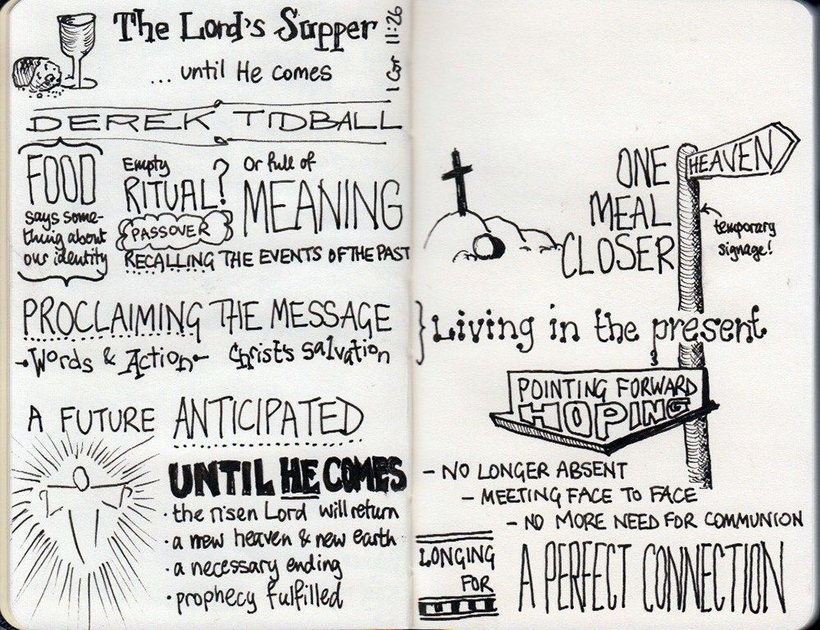 The Lord's Supper
... until He comes
1 Cor 11:26
DEREK TIDBALL
FOOD
says some-
thing about
our identity
Empty
RITUAL?
Or full of
MEANING
PASSOVER
RECALLING THE EVENTS OF THE PAST
PROCLAIMING THE MESSAGE
Words & Action
Christ's Salvation
A FUTURE ANTICIPATED
UNTIL HE COMES
· the risen Lord will return
· a new heaven & new earth
· a necessary ending
· prophecy fulfilled
ONE
MEAL
CLOSER
HEAVEN
temporary
signage!
Living in the present
POINTING FORWARD
HOPING
- NO LONGER ABSENT
- MEETING FACE TO FACE
- NO MORE NEED FOR COMMUNION
LONGING
FOR
A PERFECT CONNECTION